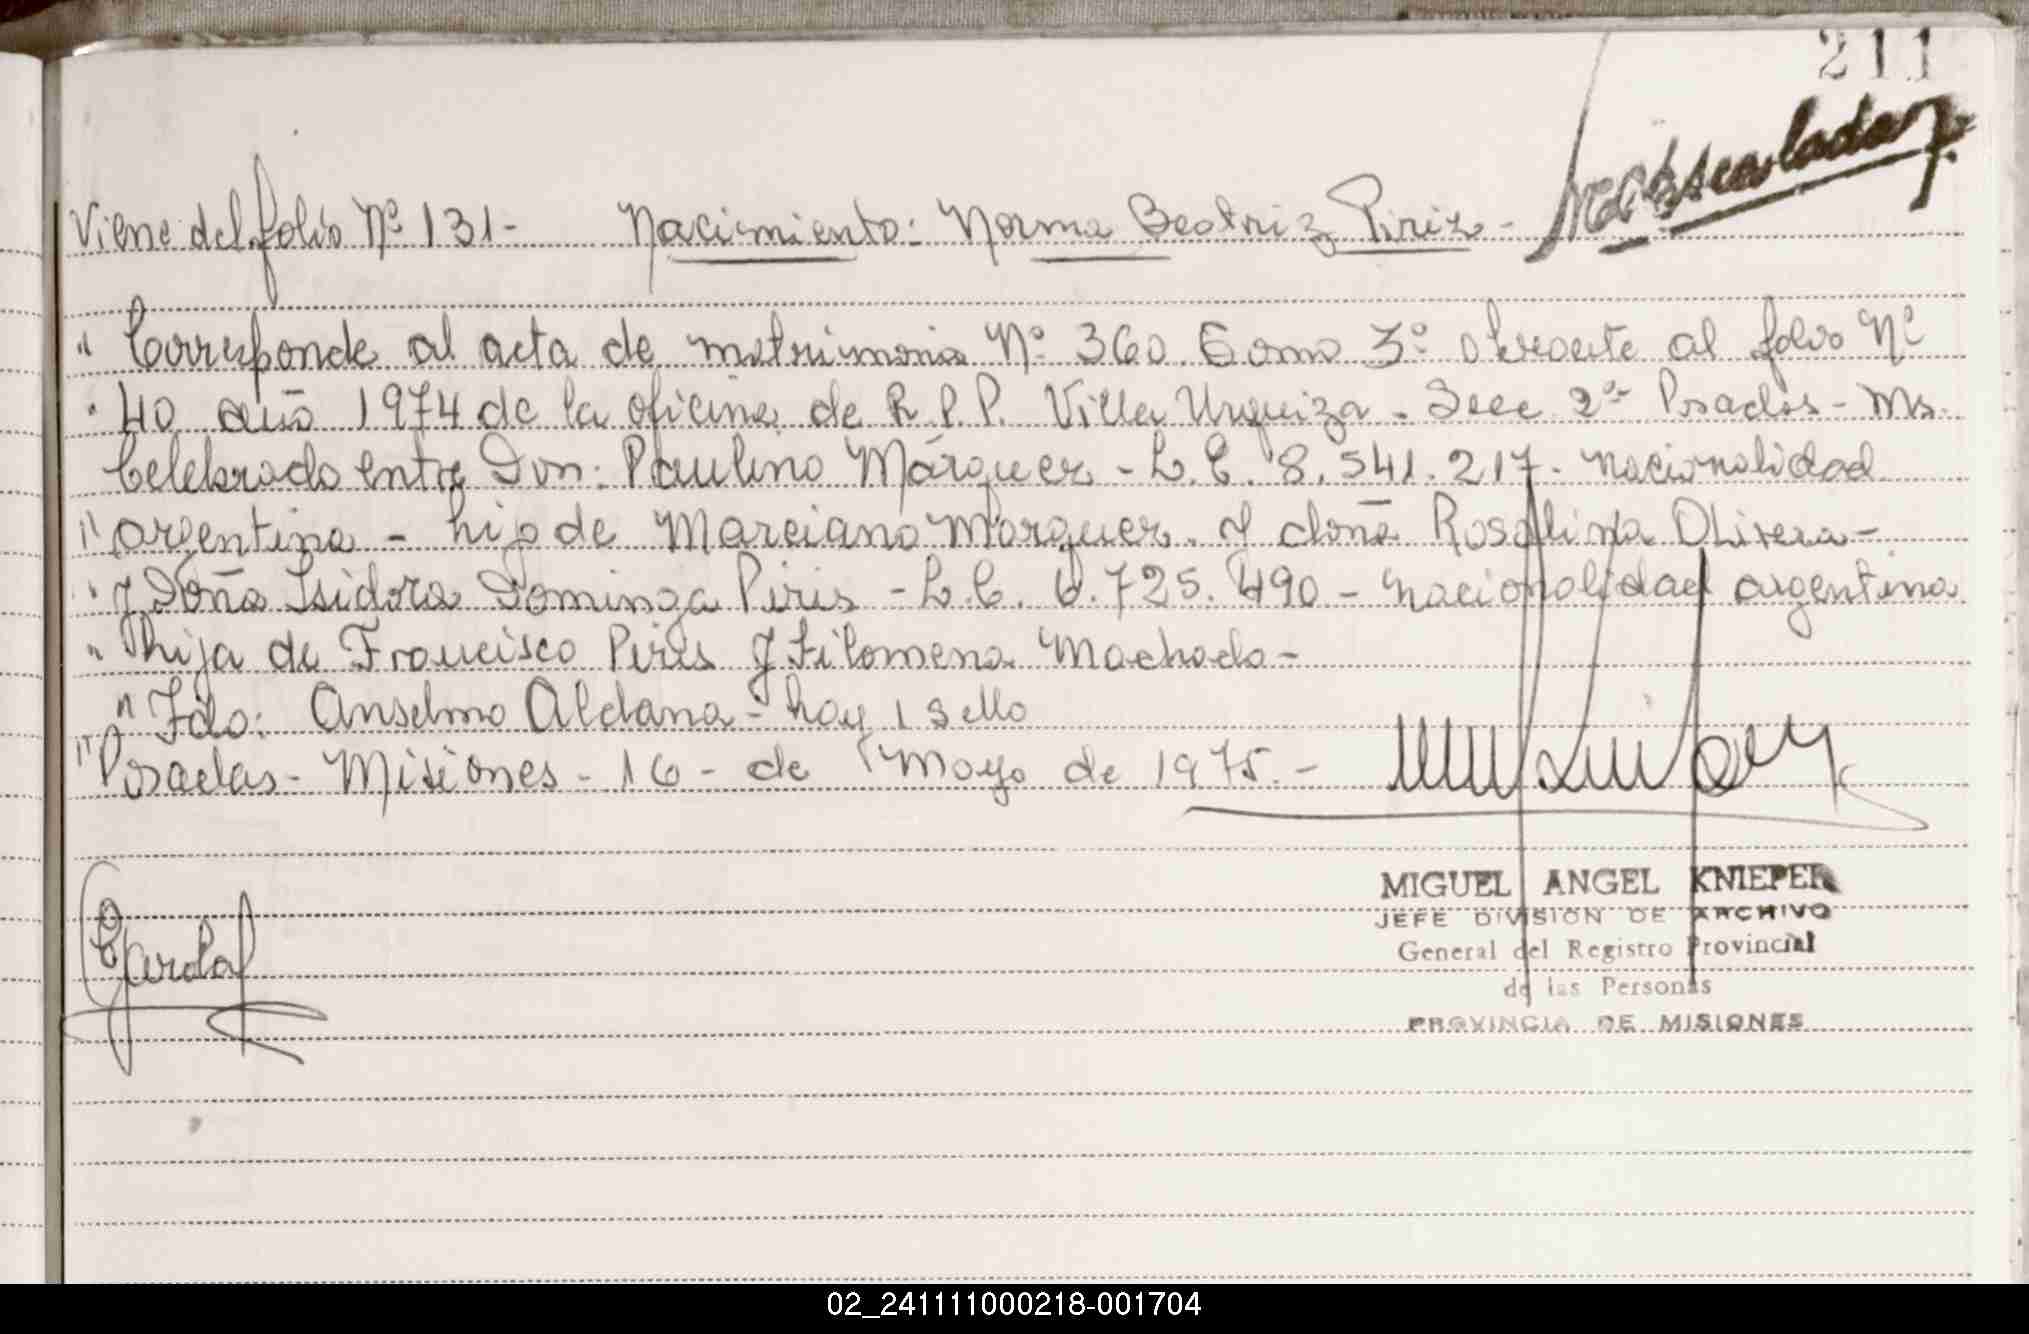 211
Viene del folio Nº 131- Nacimiento: Norma Beatriz Piriz -
" Corresponde al acta de matrimonio Nº 360. Tomo 3º obrante al folio Nº
" 40 año 1974 de la oficina de R.P.P. Villa Urquiza - Secc 2º- Posadas - Ms.
Celebrado entre Don: Paulino Márquez - L.E. 8.541.217 - nacionalidad
" argentina - hijo de Marciano Marquez. y doña Rosalinda Olivera -
" y Doña Isidora Dominga Piris - L.C. 6.725.490 - nacionalidad argentina
" hija de Francisco Piris y Filomena Machado -
" Fdo: Anselmo Aldana - hay 1 sello
" Posadas - Misiones - 16 - de Mayo de 1975. -
MIGUEL ANGEL KNIEPER
JEFE DIVISION DE ARCHIVO
General del Registro Provincial
de las Personas
PROVINCIA DE MISIONES
02_241111000218-001704